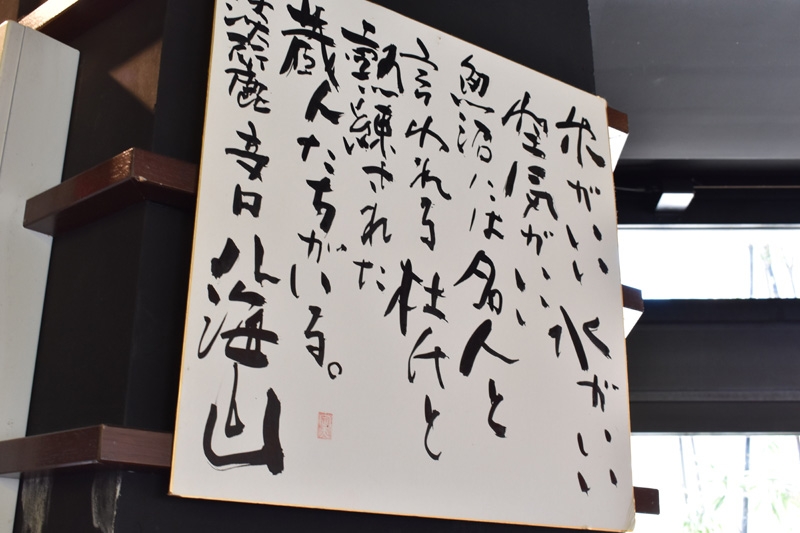 米がいい水がいい
空気がいい
魚沼には名人と
言われる杜氏と
熟練された
蔵人たちがいる。
淡麗辛口八海山